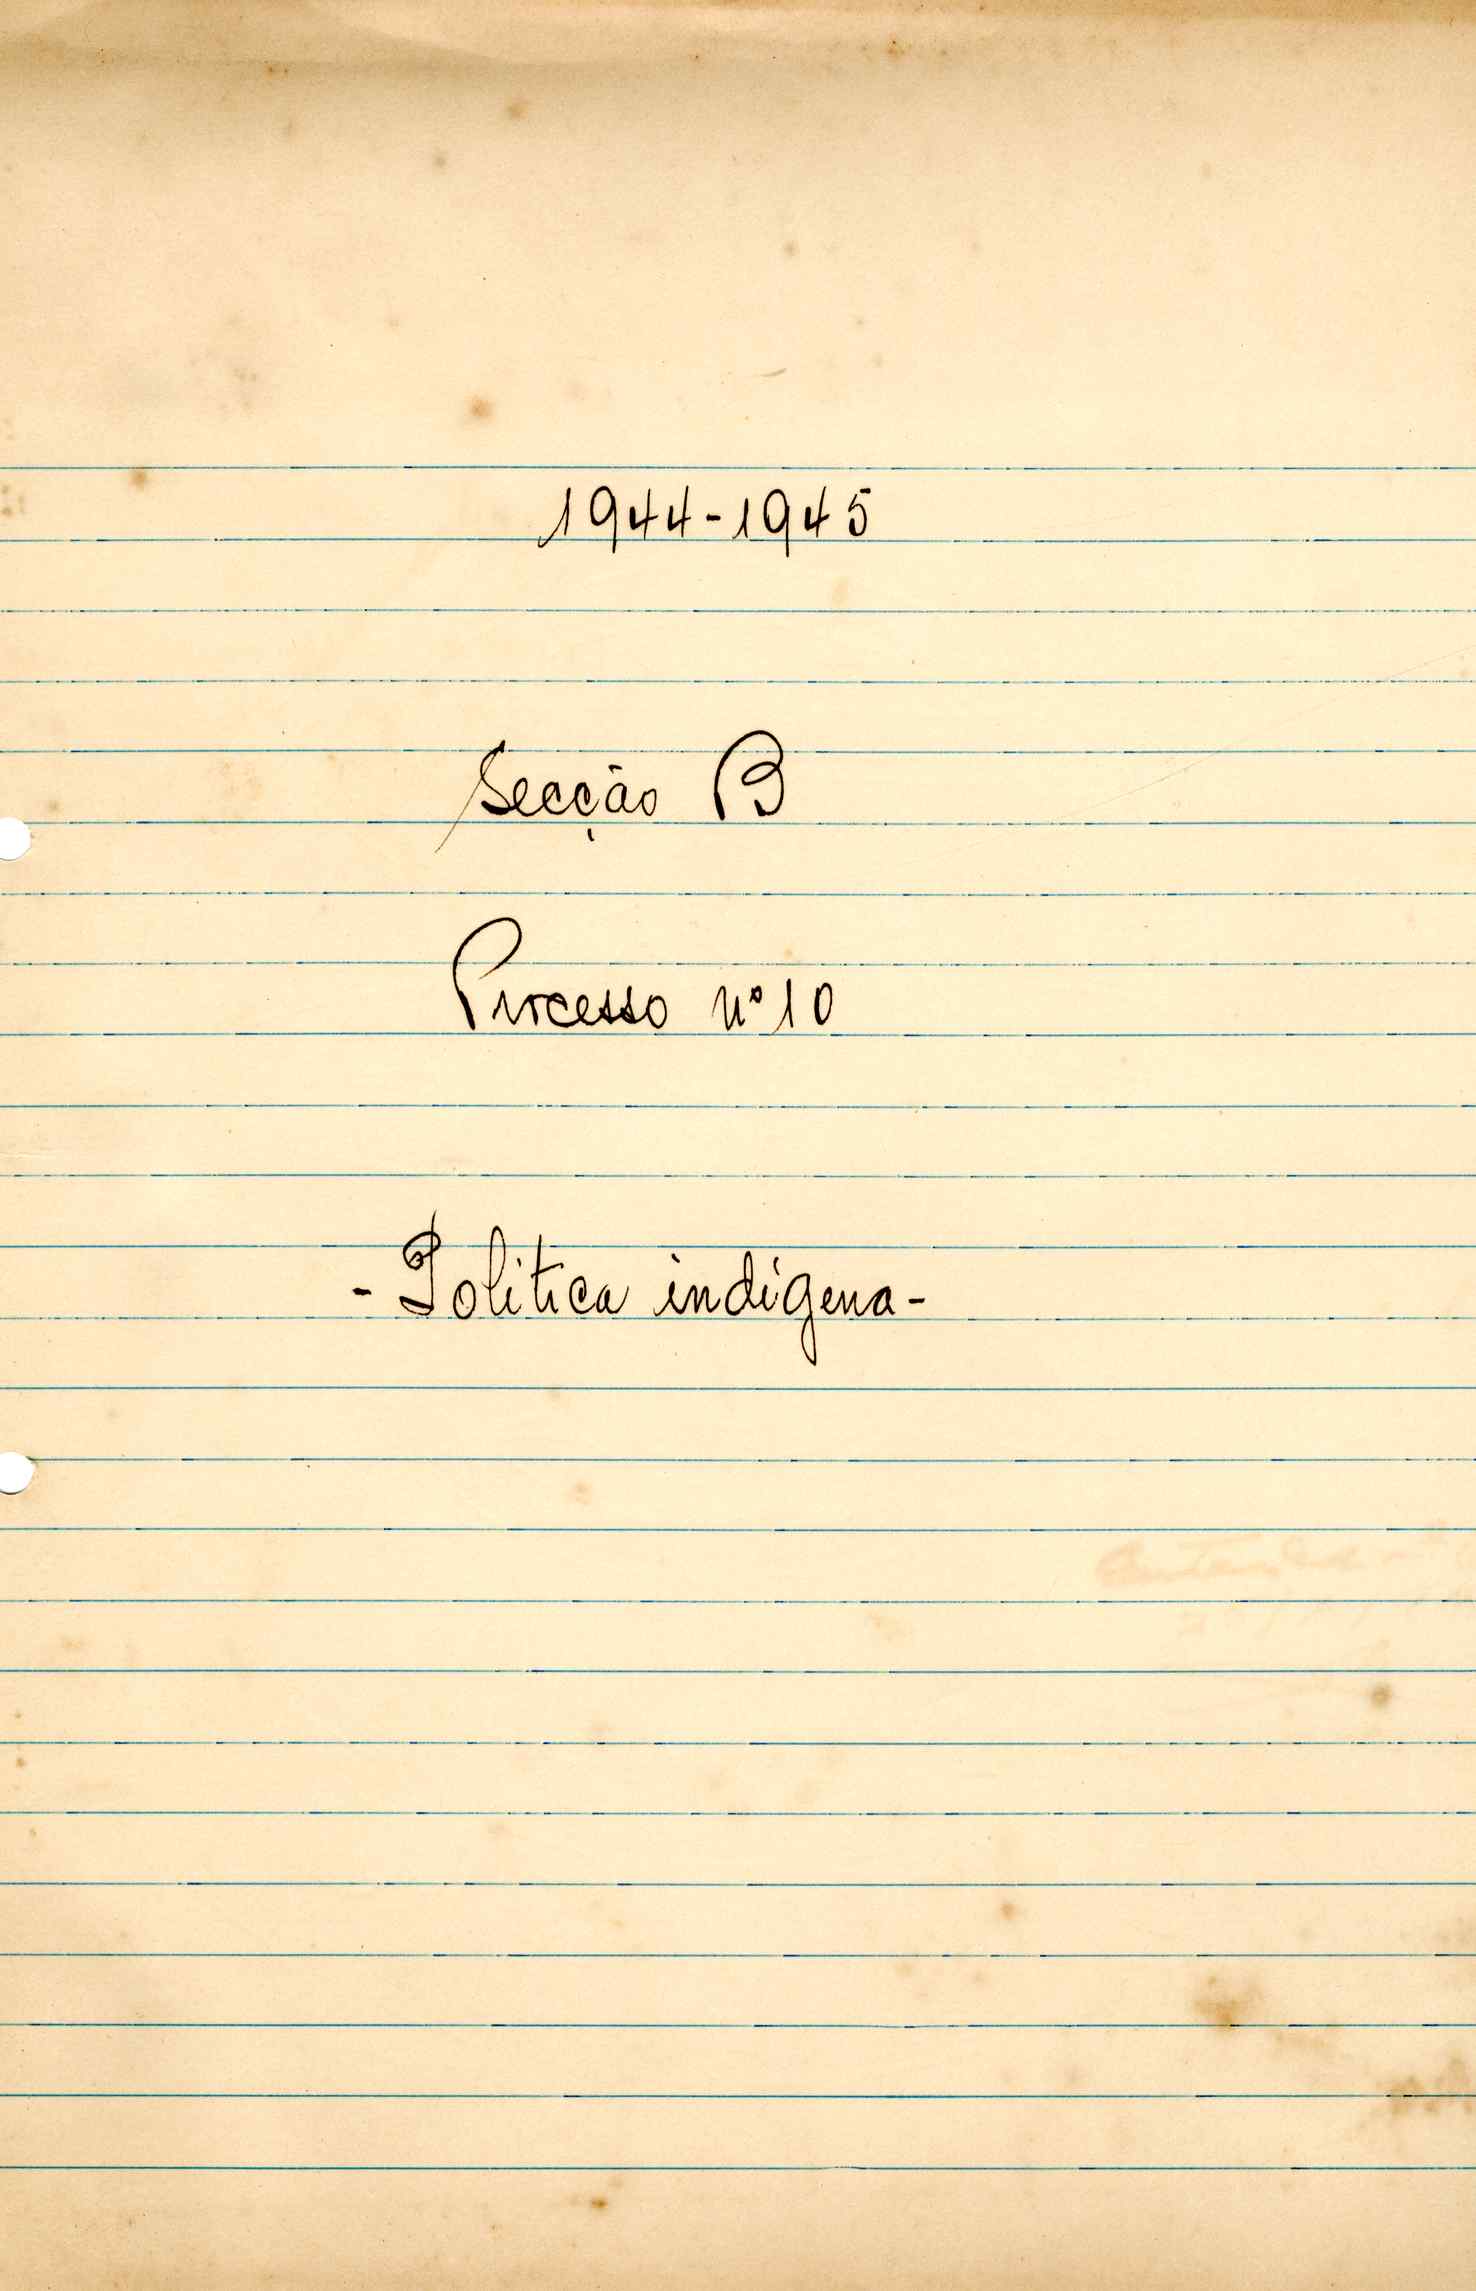 1944-1945
Secção B
Processo nº 10
- Politica indigena -